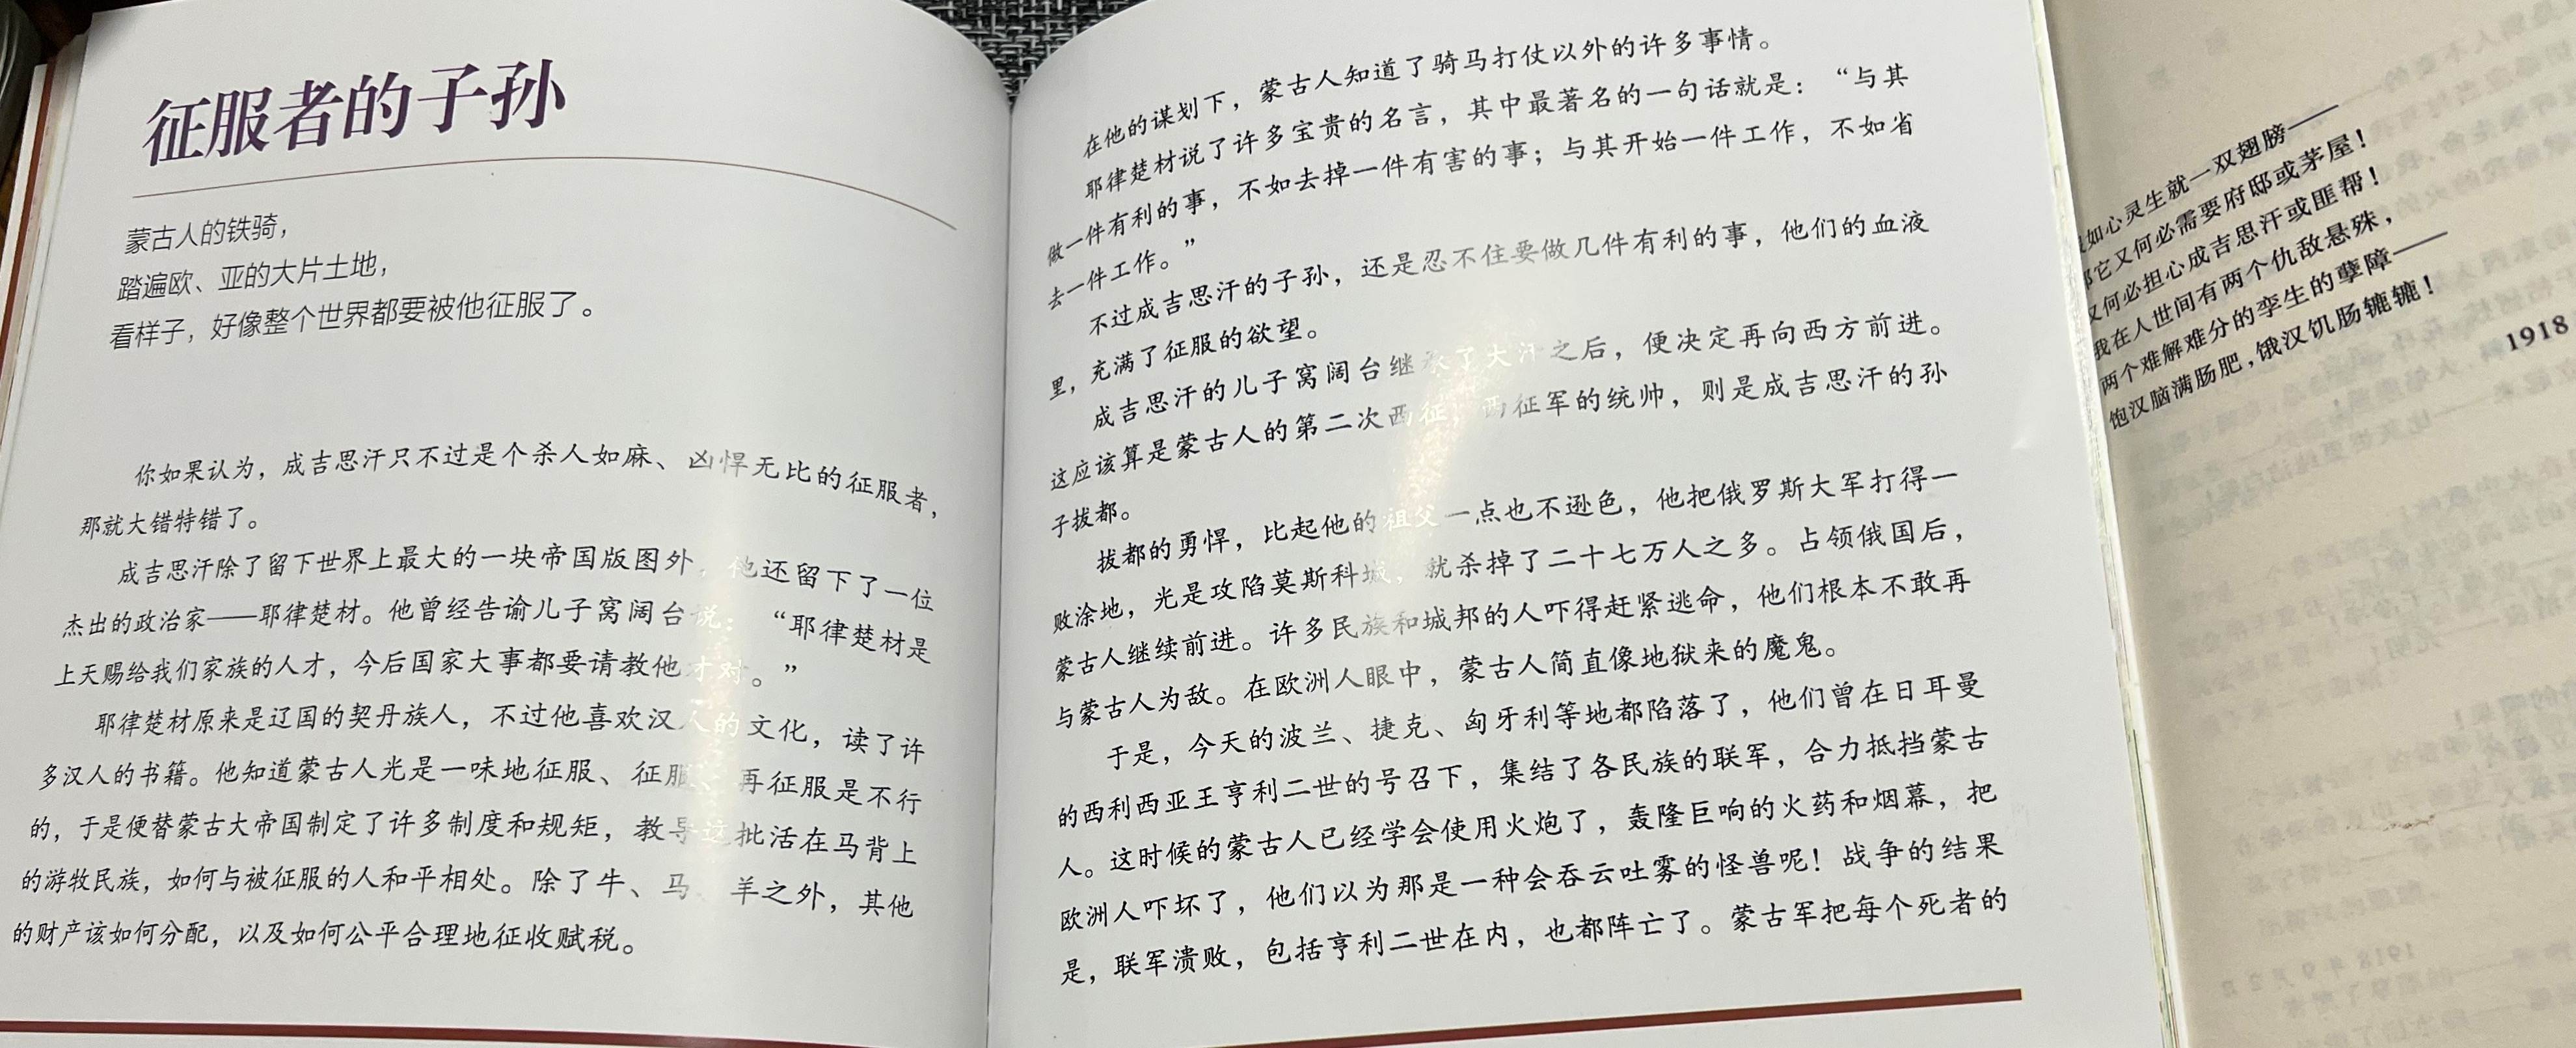 征服者的子孙
蒙古人的铁骑，
踏遍欧、亚的大片土地，
看样子，好像整个世界都要被他征服了。
你如果认为，成吉思汗只不过是个杀人如麻、凶悍无比的征服者，
那就大错特错了。
成吉思汗除了留下世界上最大的一块帝国版图外，他还留下了一位
杰出的政治家——耶律楚材。他曾经告谕儿子窝阔台说：“耶律楚材是
上天赐给我们家族的人才，今后国家大事都要请教他才对。”
耶律楚材原来是辽国的契丹族人，不过他喜欢汉人的文化，读了许
多汉人的书籍。他知道蒙古人光是一味地征服、征服、再征服是不行
的，于是便替蒙古大帝国制定了许多制度和规矩，教导这批活在马背上
的游牧民族，如何与被征服的人和平相处。除了牛、马、羊之外，其他
的财产该如何分配，以及如何公平合理地征收赋税。
在他的谋划下，蒙古人知道了骑马打仗以外的许多事情。
耶律楚材说了许多宝贵的名言，其中最著名的一句话就是：“与其
做一件有利的事，不如去掉一件有害的事；与其开始一件工作，不如省
去一件工作。”
不过成吉思汗的子孙，还是忍不住要做几件有利的事，他们的血液
里，充满了征服的欲望。
成吉思汗的儿子窝阔台继承了大汗之后，便决定再向西方前进。
这应该算是蒙古人的第二次西征，西征军的统帅，则是成吉思汗的孙
子拔都。
拔都的勇悍，比起他的祖父一点也不逊色，他把俄罗斯大军打得一
败涂地，光是攻陷莫斯科城，就杀掉了二十七万人之多。占领俄国后，
蒙古人继续前进。许多民族和城邦的人吓得赶紧逃命，他们根本不敢再
与蒙古人为敌。在欧洲人眼中，蒙古人简直像地狱来的魔鬼。
于是，今天的波兰、捷克、匈牙利等地都陷落了，他们曾在日耳曼
的西利西亚王亨利二世的号召下，集结了各民族的联军，合力抵挡蒙古
人。这时候的蒙古人已经学会使用火炮了，轰隆巨响的火药和烟幕，把
欧洲人吓坏了，他们以为那是一种会吞云吐雾的怪兽呢！战争的结果
是，联军溃败，包括亨利二世在内，也都阵亡了。蒙古军把每个死者的
如心灵生就一双翅膀——
它又何必需要府邸或茅屋！
又何必担心成吉思汗或匪帮！
我在人世间有两个仇敌悬殊，
两个难解难分的孪生的孽障——
饱汉脑满肠肥，饿汉饥肠辘辘！
1918